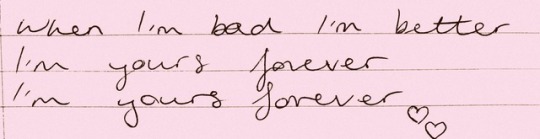 when I'm bad I'm better
I'm yours forever
I'm yours forever